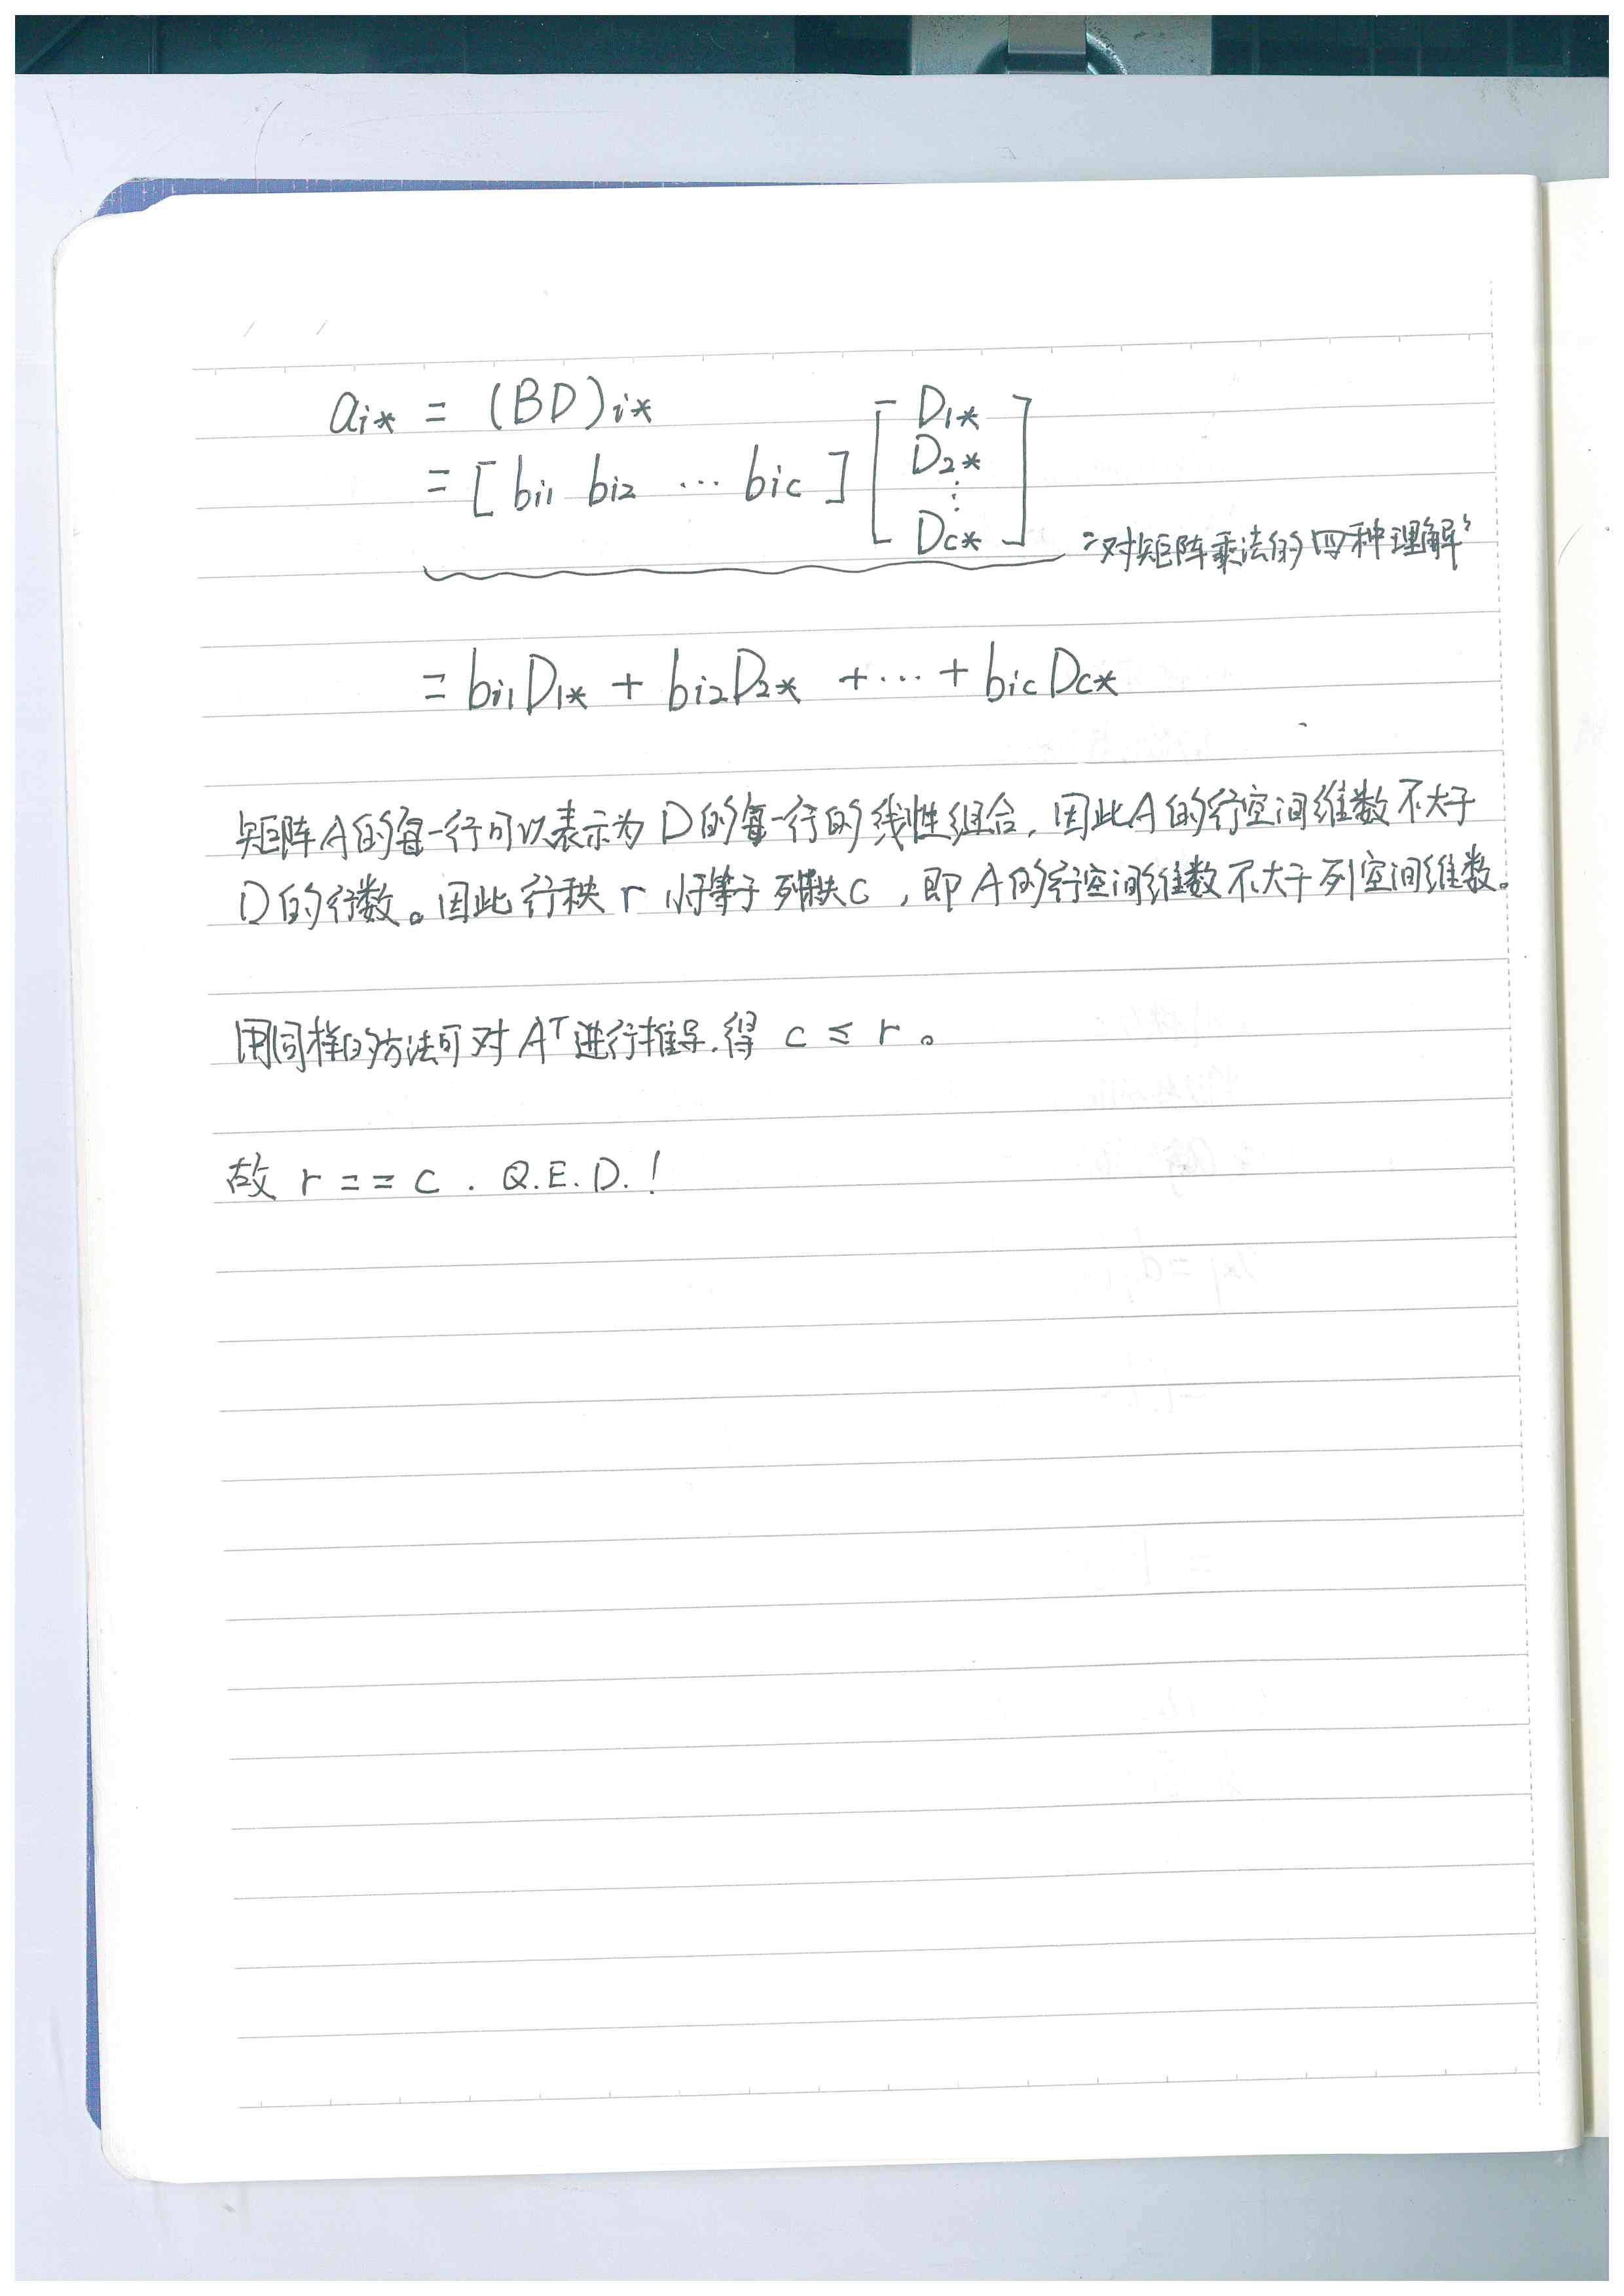 a_{i*} = (BD)_{i*}
= [ b_{i1} b_{i2} ⋯ b_{ic} ] [ D_{1*} D_{2*} ⋮ D_{c*} ]
"对矩阵乘法的四种理解"
= b_{i1}D_{1*} + b_{i2}D_{2*} + ⋯ + b_{ic}D_{c*}
矩阵A的每一行可以表示为D的每一行的线性组合, 因此A的行空间维数不大于
D的行数。因此行秩 r 小于等于 列秩c , 即A的行空间维数不大于列空间维数。
用同样的方法可对 A^T 进行推导,得 c ≤ r 。
故 r == c . Q.E.D.!